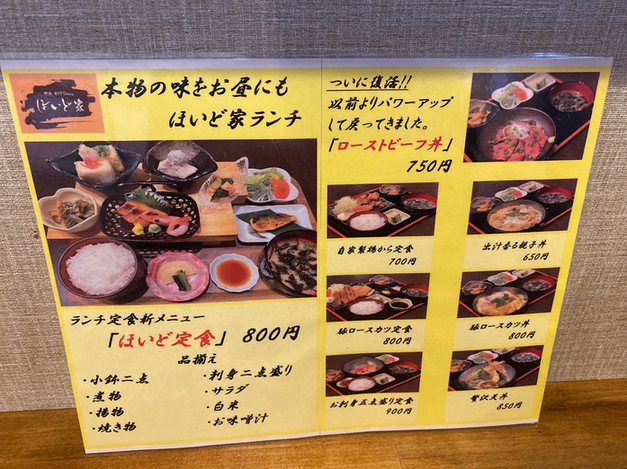 ほいど家
本物の味をお昼にも
ほいど家ランチ
ランチ定食新メニュー
「ほいど定食」 800円
品揃え
・小鉢二点
・煮物
・揚物
・焼き物
・刺身二点盛り
・サラダ
・白米
・お味噌汁
ついに復活!!
以前よりパワーアップ
して戻ってきました。
「ローストビーフ丼」
750円
自家製鶏から定食
700円
出汁香る親子丼
650円
豚ロースカツ定食
800円
豚ロースカツ丼
800円
お刺身五点盛り定食
900円
贅沢天丼
850円